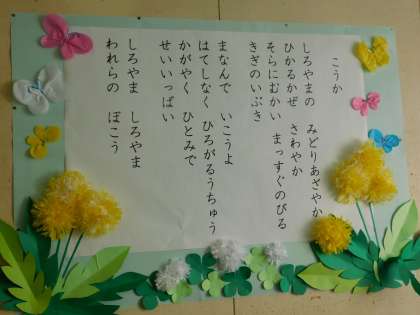 こうか
しろやまの　みどりあざやか
ひかるかぜ　さわやか
そらにむかい　まっすぐのびる
きぎのいぶき
まなんで　いこうよ
はてしなく　ひろがるうちゅう
かがやく　ひとみで
せいいっぱい
しろやま　しろやま
われらの　ぼこう